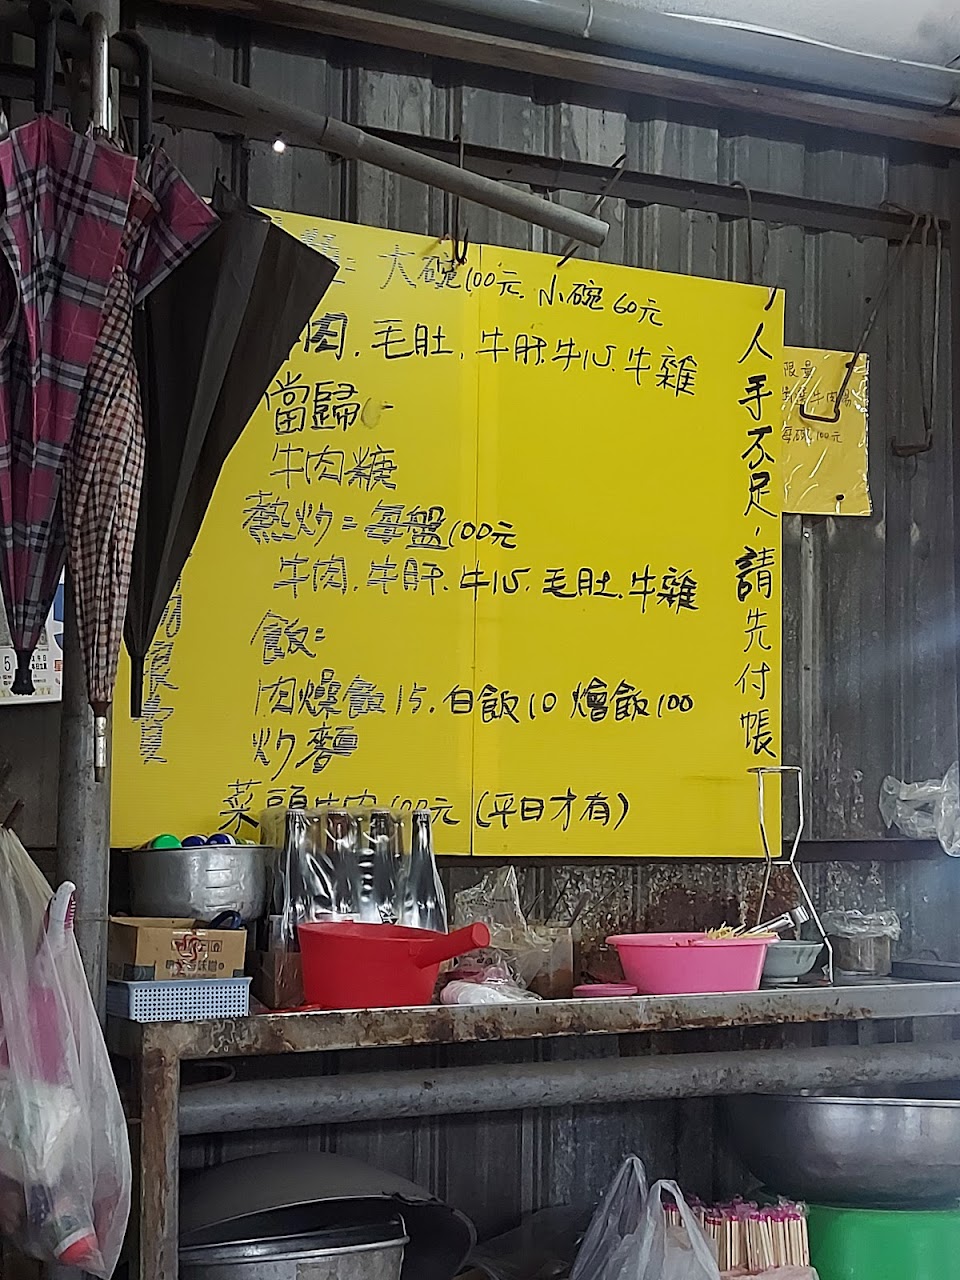 大碗100元. 小碗60元
肉. 毛肚. 牛肝. 牛心. 牛雜
當歸
牛肉羹
熱炒=每盤100元
牛肉. 牛肝. 牛心. 毛肚. 牛雜
飯=
肉燥飯15. 白飯10 燴飯100
炒麵
菜頭牛肉100元(平日才有)
人手不足, 請先付帳
限量
牛肉湯
每碗100元
5